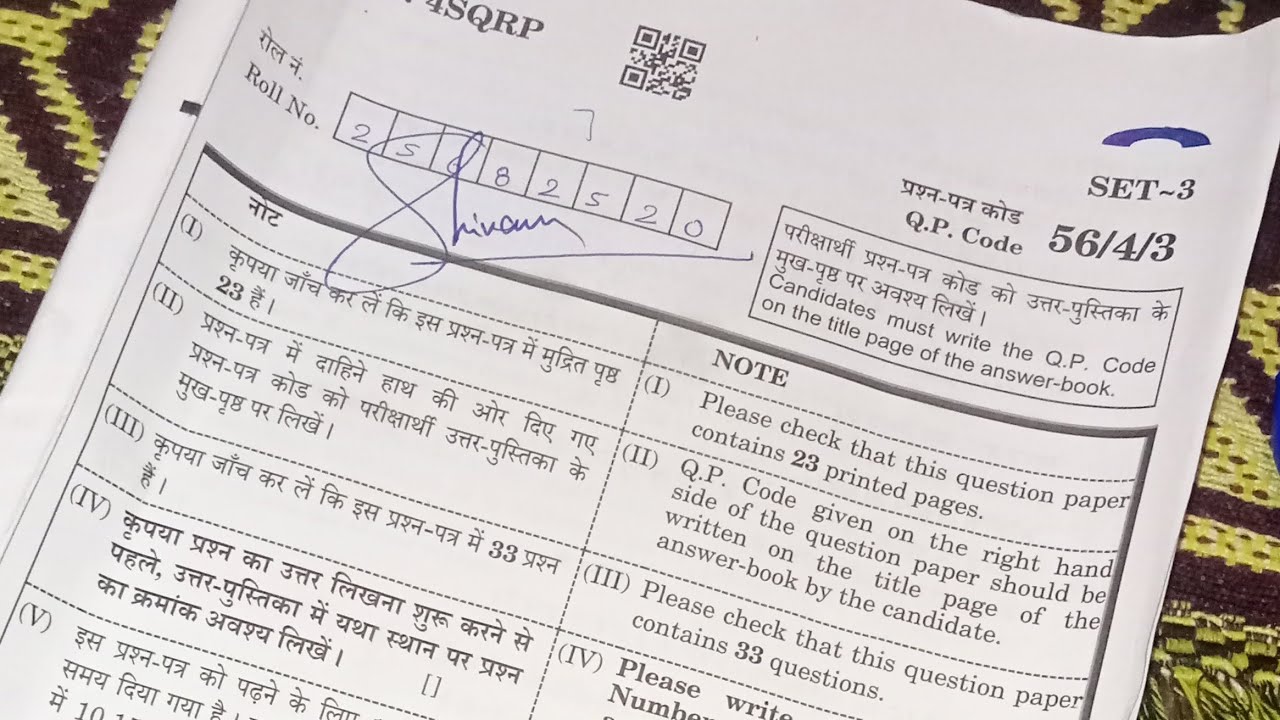 4SQRP
रोल नं.
Roll No.
2 5 6 8 2 5 2 0
Shivam
SET~3
प्रश्न-पत्र कोड
Q.P. Code 56/4/3
परीक्षार्थी प्रश्न-पत्र कोड को उत्तर-पुस्तिका के
मुख-पृष्ठ पर अवश्य लिखें।
Candidates must write the Q.P. Code
on the title page of the answer-book.
नोट
(I) कृपया जाँच कर लें कि इस प्रश्न-पत्र में मुद्रित पृष्ठ
23 हैं।
(II) प्रश्न-पत्र में दाहिने हाथ की ओर दिए गए
प्रश्न-पत्र कोड को परीक्षार्थी उत्तर-पुस्तिका के
मुख-पृष्ठ पर लिखें।
(III) कृपया जाँच कर लें कि इस प्रश्न-पत्र में 33 प्रश्न
हैं।
(IV) कृपया प्रश्न का उत्तर लिखना शुरू करने से
पहले, उत्तर-पुस्तिका में यथा स्थान पर प्रश्न
का क्रमांक अवश्य लिखें।
(V) इस प्रश्न-पत्र को पढ़ने के लिए
समय दिया गया है।
में 10.15
NOTE
(I) Please check that this question paper
contains 23 printed pages.
(II) Q.P. Code given on the right hand
side of the question paper should be
written on the title page of the
answer-book by the candidate.
(III) Please check that this question paper
contains 33 questions.
(IV) Please write
Number